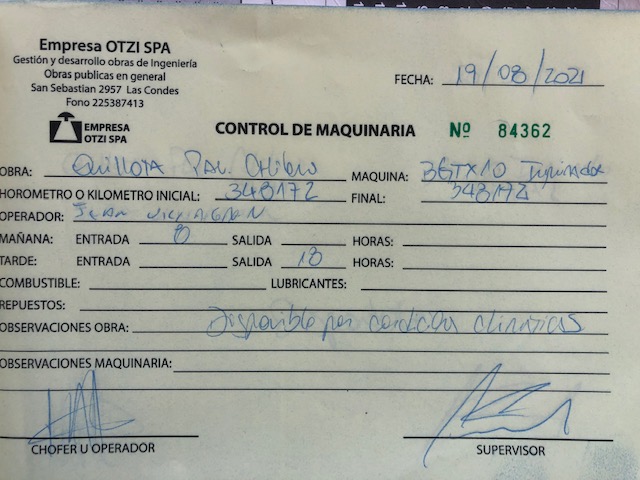 Empresa OTZI SPA
Gestión y desarrollo obras de Ingeniería
Obras publicas en general
San Sebastian 2957 Las Condes
Fono 225387413
EMPRESA
OTZI SPA
FECHA: 19/08/2021
CONTROL DE MAQUINARIA Nº 84362
OBRA: Quillota MAQUINA:
HOROMETRO O KILOMETRO INICIAL: 348172 FINAL: 348172
OPERADOR:
MAÑANA: ENTRADA 8 SALIDA HORAS:
TARDE: ENTRADA SALIDA 18 HORAS:
COMBUSTIBLE: LUBRICANTES:
REPUESTOS:
OBSERVACIONES OBRA: Disponible por condicion climaticas
OBSERVACIONES MAQUINARIA:
CHOFER U OPERADOR SUPERVISOR